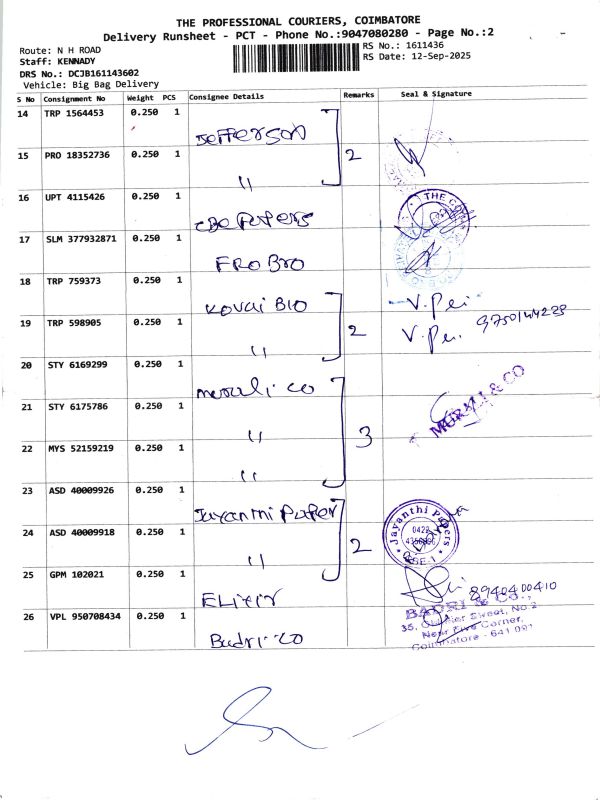 THE PROFESSIONAL COURIERS, COIMBATORE
Delivery Runsheet - PCT - Phone No.:9047080280 - Page No.:2
Route: N H ROAD
RS No.: 1611436
Staff: KENNADY
RS Date: 12-Sep-2025
DRS No.: DCJB161143602
Vehicle: Big Bag Delivery
S No Consignment No Weight PCS Consignee Details Remarks Seal & Signature
14 TRP 1564453 0.250 1
Jefferson
15 PRO 18352736 0.250 1 2
"
16 UPT 4115426 0.250 1
THE CO
CBE Papers
17 SLM 377932871 0.250 1
FRO BRO
18 TRP 759373 0.250 1
Kovai BIO V.Pei
19 TRP 598905 0.250 1 2 V.Pei 9750144229
"
20 STY 6169299 0.250 1
Murali co MURALI & CO
21 STY 6175786 0.250 1
" 3
22 MYS 52159219 0.250 1
"
23 ASD 40009926 0.250 1
Jayanthi Paper Jayanthi Papers
24 ASD 40009918 0.250 1 0422
" 2 CBE-1
25 GPM 102021 0.250 1
Elixir 8940400410
26 VPL 950708434 0.250 1 BADRI & Co.,
35, Street, No.2
Badri co Near Five Corner,
Coimbatore - 641 001